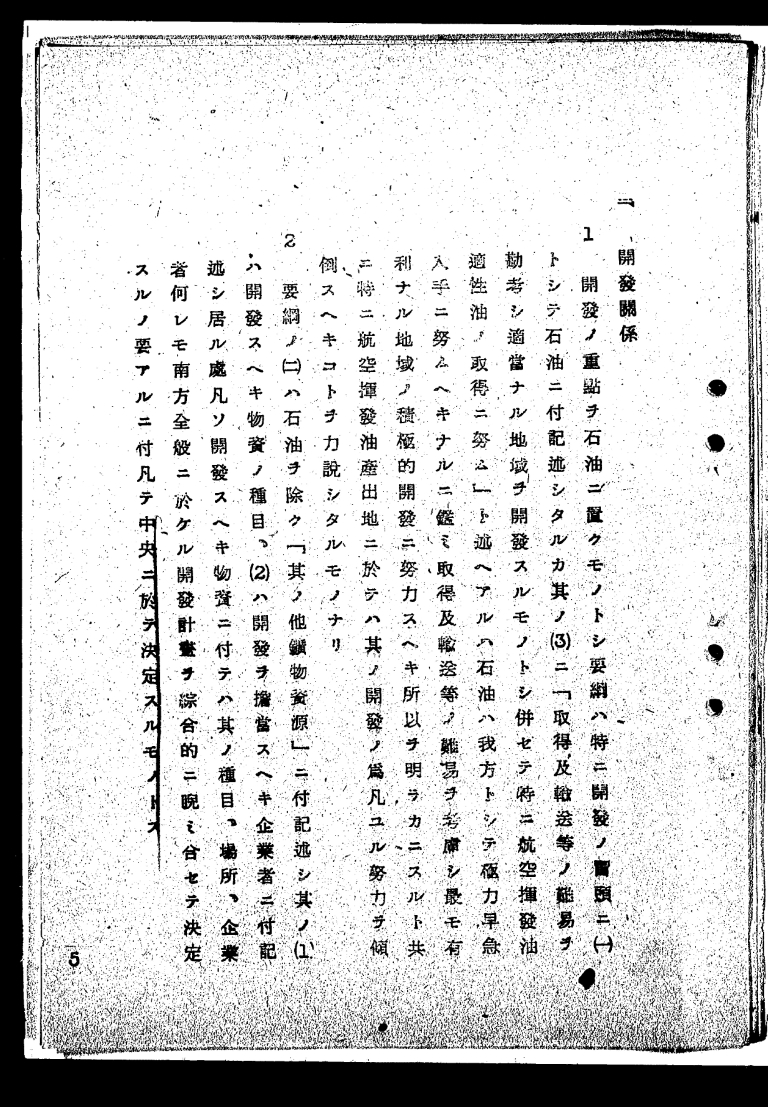 二、開發關係
1 開發ノ重點ヲ石油ニ置クモノトシ要綱ハ特ニ開發ノ冒頭ニ(一)
トシテ石油ニ付記述シタルカ其ノ(3)ニ「取得及輸送等ノ難易ヲ
勘考シ適當ナル地域ヲ開發スルモノトシ併セテ特ニ航空揮發油
適性油ノ取得ニ努ム」ト述ヘアルハ石油ハ我方トシテ極力早急
入手ニ努ムヘキナルニ鑑ミ取得及輸送等ノ難易ヲ考慮シ最モ有
利ナル地域ノ積極的開發ニ努力スヘキ所以ヲ明ラカニスルト共
ニ特ニ航空揮發油產出地ニ於テハ其ノ開發ノ爲凡ユル努力ヲ傾
倒スヘキコトヲ力說シタルモノナリ
2 要綱ノ(二)ハ石油ヲ除ク「其ノ他鑛物資源」ニ付記述シ其ノ(1)
ハ開發スヘキ物資ノ種目、(2)ハ開發ヲ擔當スヘキ企業者ニ付記
述シ居ル處凡ソ開發スヘキ物資ニ付テハ其ノ種目、場所、企業
者何レモ南方全般ニ於ケル開發計畫ヲ綜合的ニ睨ミ合セテ決定
スルノ要アルニ付凡テ中央ニ於テ決定スルモノトス
5